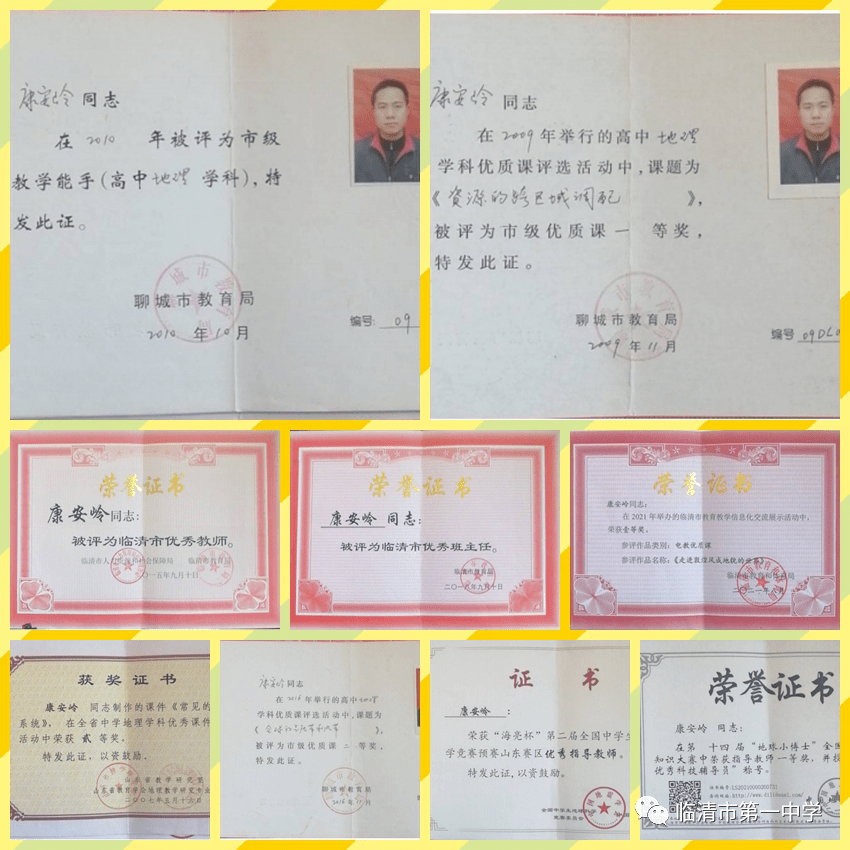 康安岭 同志
在 2010 年被评为市级
教学能手(高中地理 学科),特
发此证。
聊城市教育局
2010 年 10 月
编号: 09
康安岭 同志
在 2009 年举行的高中 地理
学科优质课评选活动中,课题为
《 资源的跨区域调配 》,
被评为市级优质课一 等奖,
特发此证。
聊城市教育局
2009 年 11 月
编号 09DL0
荣誉证书
康安岭同志:
被评为临清市优秀教师。
临清市教育局
二〇一五年九月十日
荣誉证书
康安岭 同志:
被评为临清市优秀班主任。
临清市教育局
荣誉证书
康安岭同志:
在2021年举办的临清市教育教学信息化交流展示活动中,
荣获壹等奖。
参评作品类别: 电教优质课
获 奖 证 书
康安岭 同志制作的课件《常见的
系统》, 在全省中学地理学科优秀课件
活动中荣获 贰 等奖。
特发此证,以资鼓励。
山东省教学研究室
二〇〇七年五月十六日
康安岭 同志
在 2016 年举行的高中 地理
学科优质课评选活动中,课题为
被评为市级优质课 二 等奖,
特发此证。
聊城市教育局
2016 年 11 月
证 书
康安岭 :
荣获“海亮杯”第二届全国中学生
学竞赛预赛山东赛区优秀指导教师。
特发此证,以资鼓励。
荣誉证书
康安岭 同志:
在第 十四 届“地球小博士”全国
知识大赛中荣获指导教师一等奖,并授
优秀科技辅导员”称号。
临清市第一中学